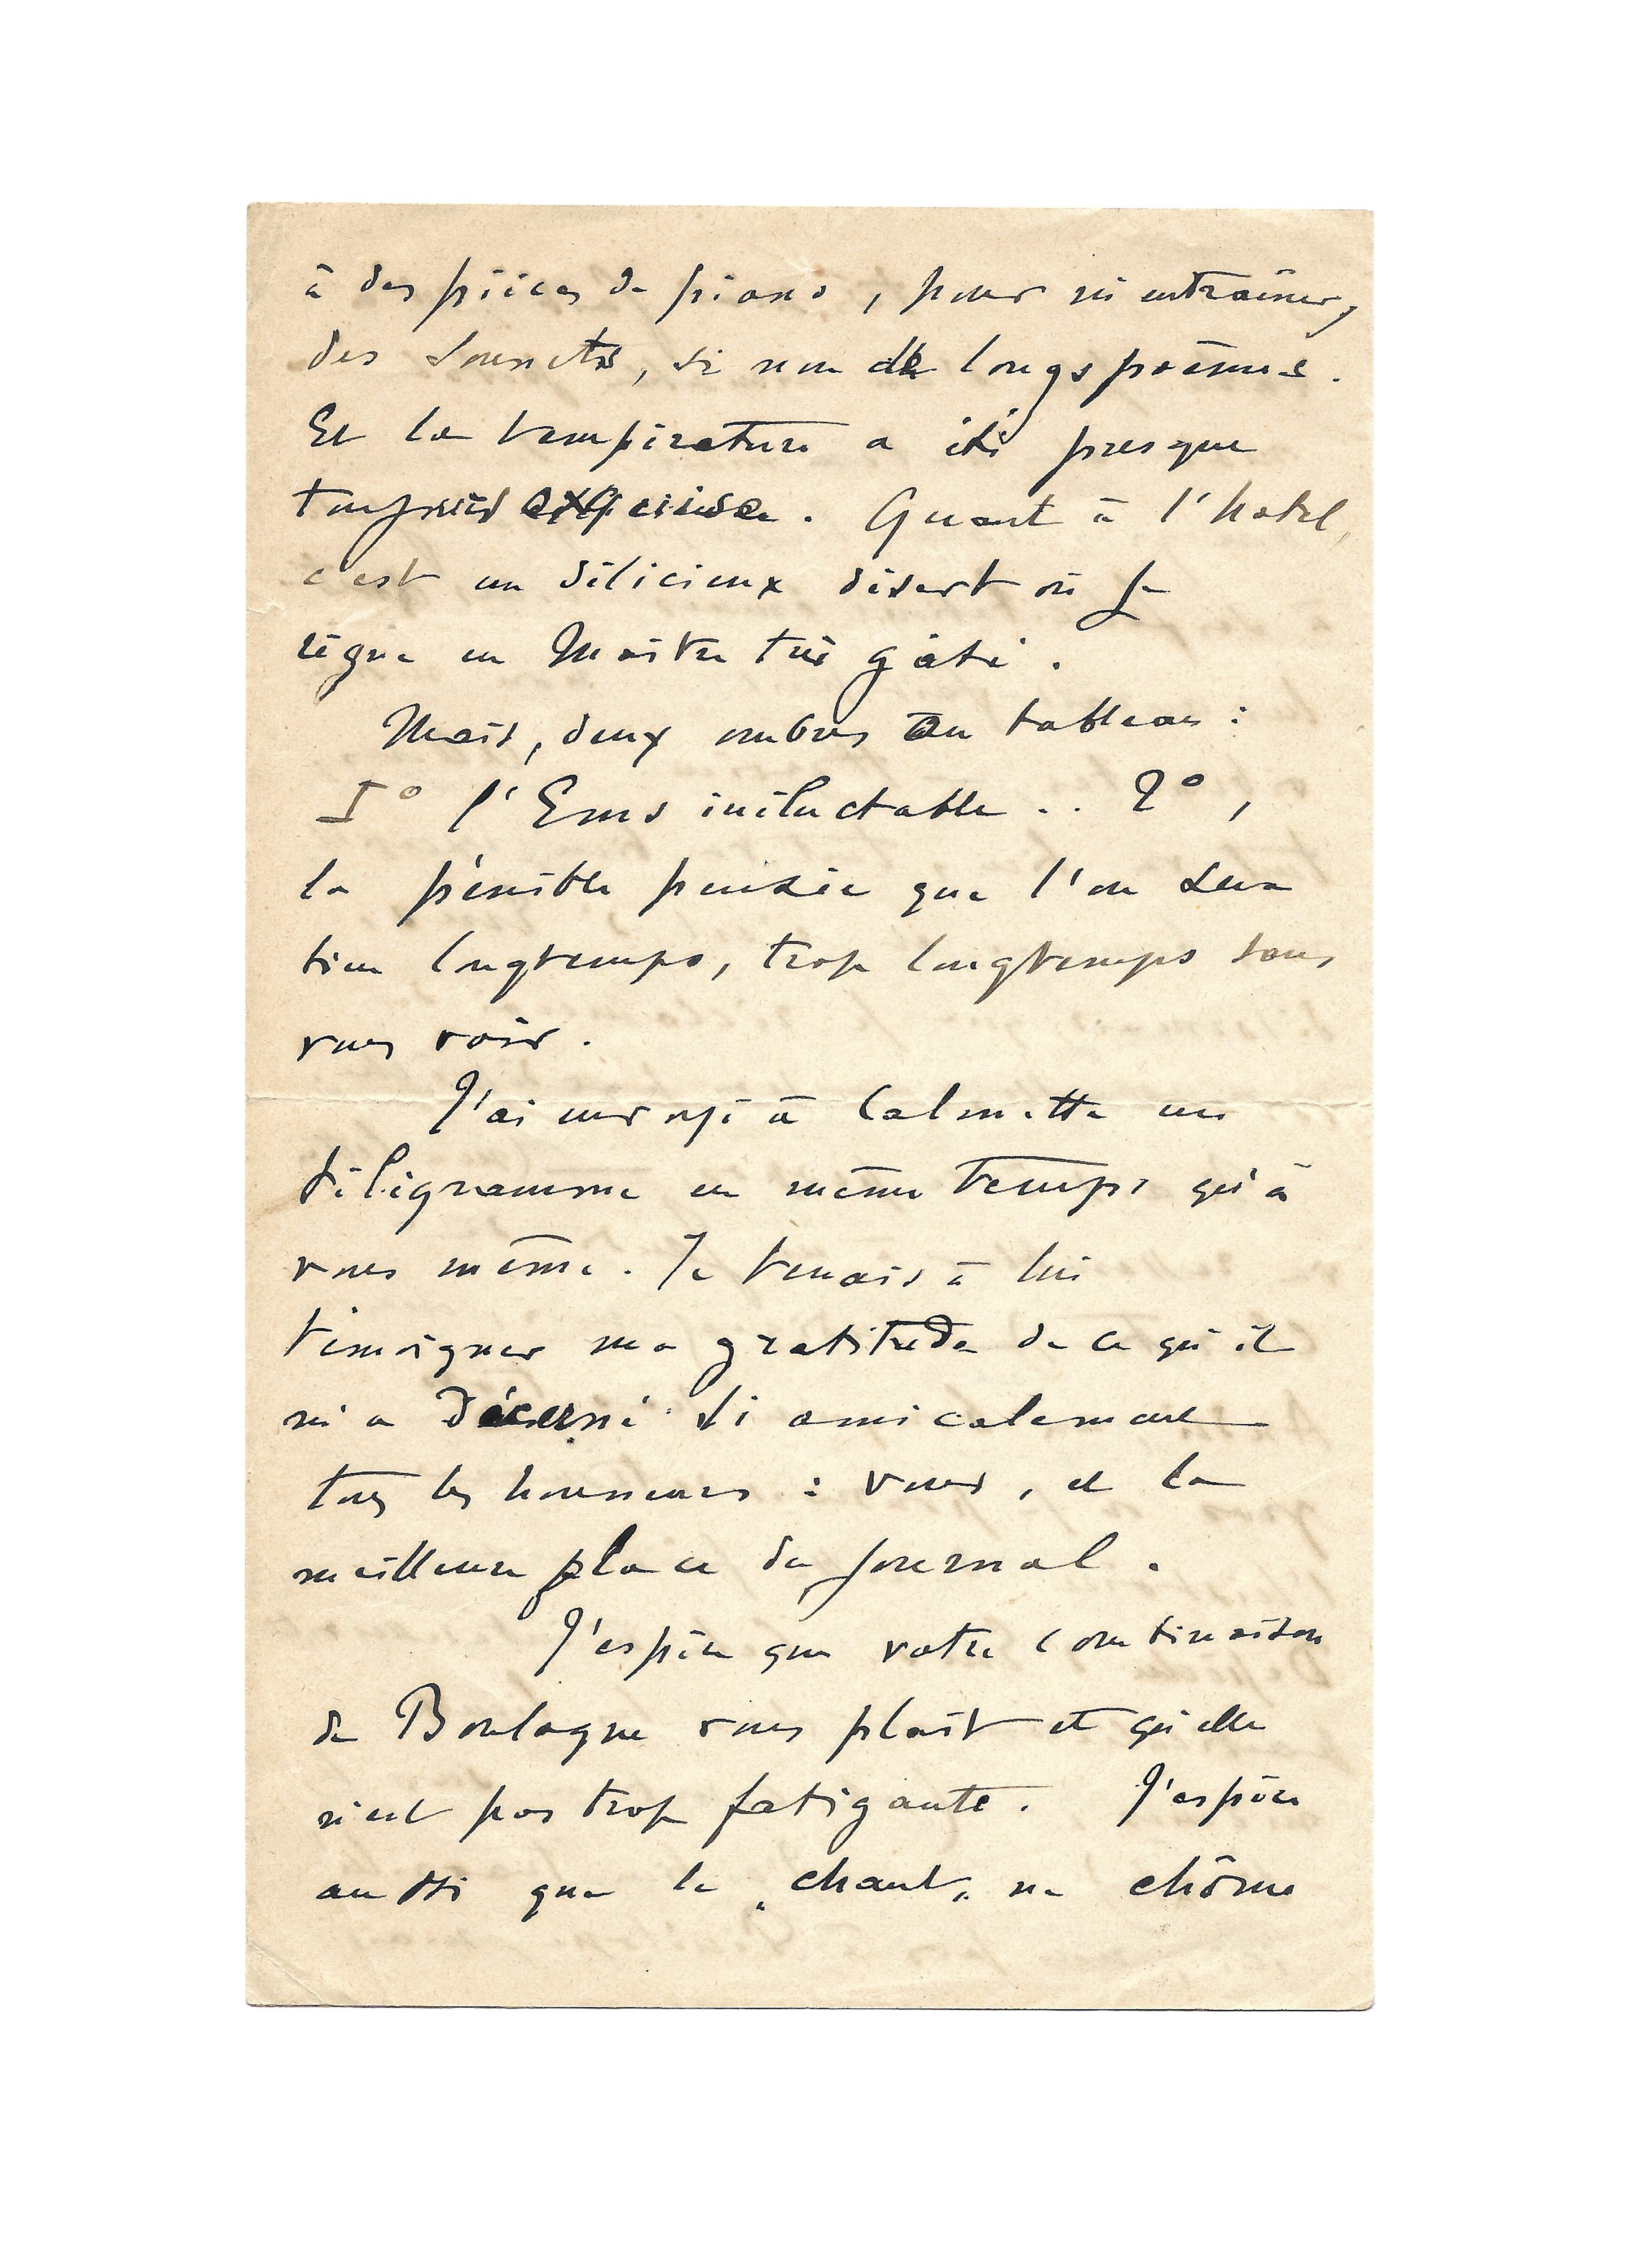 à des pièces de piano, pour m'entraîner,
des sonnets, si non de longs poèmes.
Et la température a été presque
toujours exquise. Quant à l'hotel,
c'est un délicieux désert où je
règne en Maître très gâté.
Mais, deux ombres au tableau :
I° l'Ems inéluctable .. 2°,
la pénible pensée que l'on sera
bien longtemps, trop longtemps sans
vous voir.
J'ai envoyé à Calmette un
télégramme en même temps qu'à
vous même. Je tenais à lui
témoigner ma gratitude de ce qu'il
m'a décerné si amicalement
tous les honneurs : vous, et la
meilleure place du journal.
J'espère que votre combinaison
de Boulogne vous plaît et qu'elle
n'est pas trop fatigante. J'espère
aussi que le „chant„ ne chôme